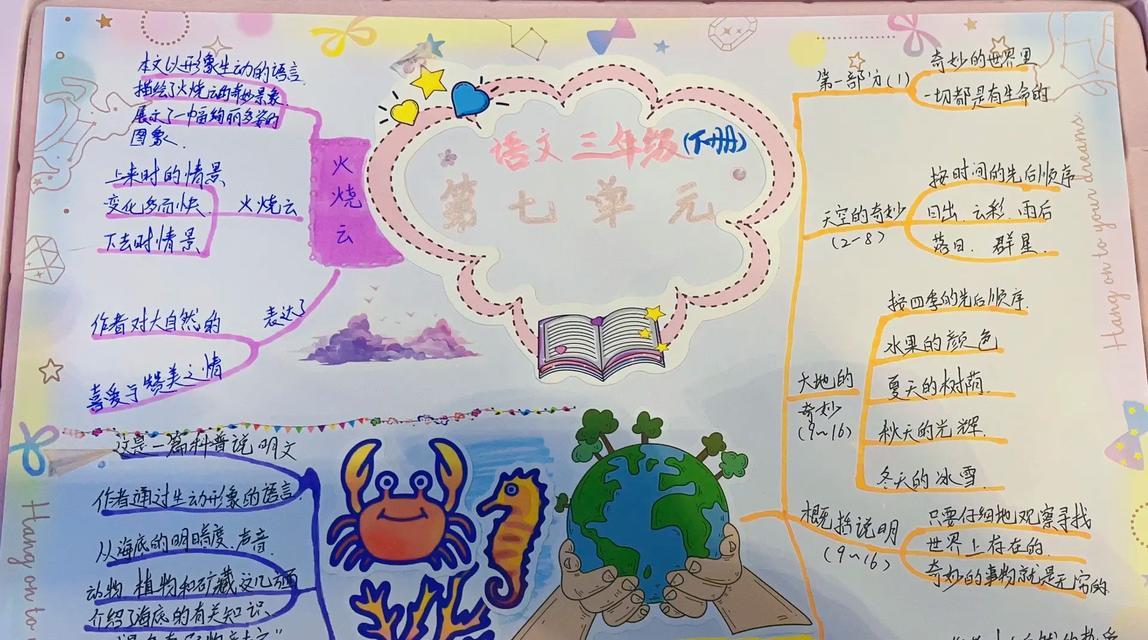 语文三年级(下册)
第七单元
本文以形象生动的语言
描绘了火烧云的奇妙景象,
展示了一中面绚丽多姿的
图象.
火烧云
上来时的情景
变化多而快
下去时情景
火烧云
表达了
作者对大自然的
喜爱于赞美之情
这是一篇科普说明文
作者通过生动形象的语言
从海底的明暗度.声音.
动物 植物和矿藏这几方面
介绍了海底的有关知识.
第一部分(1)
奇妙的世界里
一切都是有生命的
天空的奇妙
(2-8)
按时间的先后顺序
日出.云彩.雨后
落日.群星.
大地的
奇妙
(9~16)
按四季的先后顺序.
水果的颜色
夏天的树荫.
秋天的光辉.
冬天的冰雪.
概括说明
(9~16)
只要仔细地观察寻找
世界上存在的.
奇妙的事物就是无穷的
Hang on to your dreams.
Hang on to